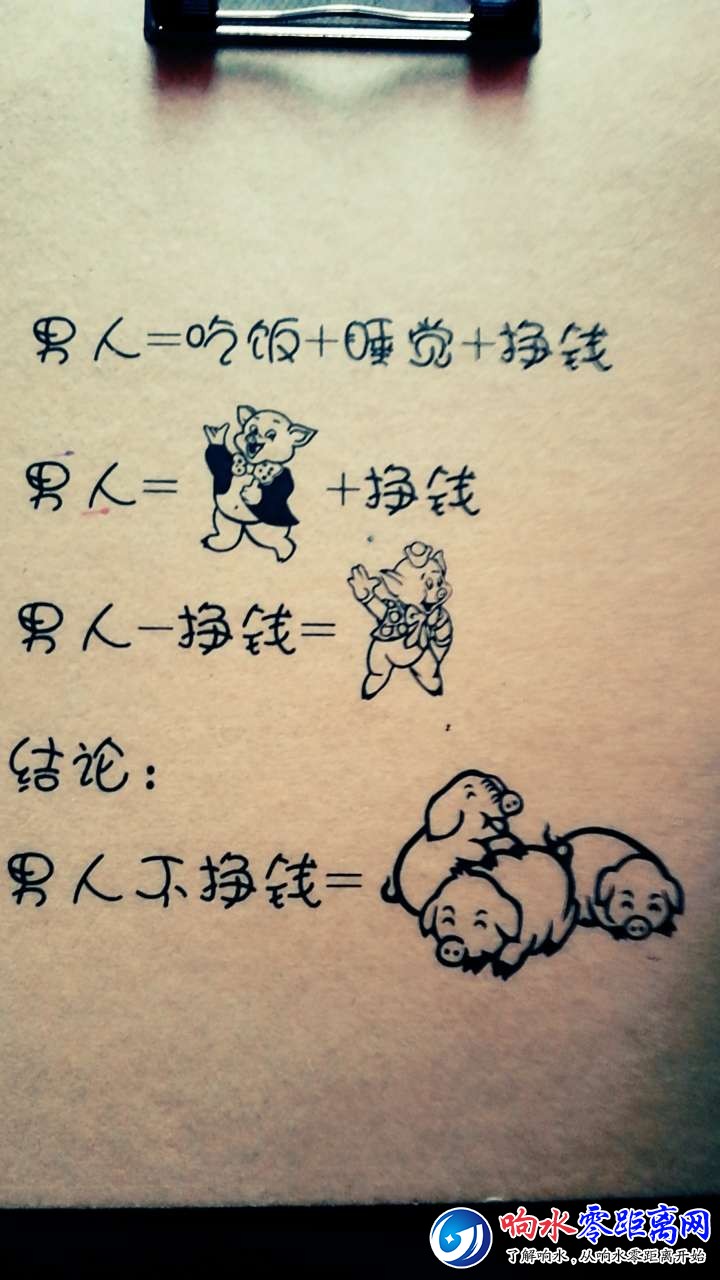 男人=吃饭+睡觉+挣钱
男人= +挣钱
男人-挣钱=
结论：
男人不挣钱=
响水零距离网
了解响水，从响水零距离开始